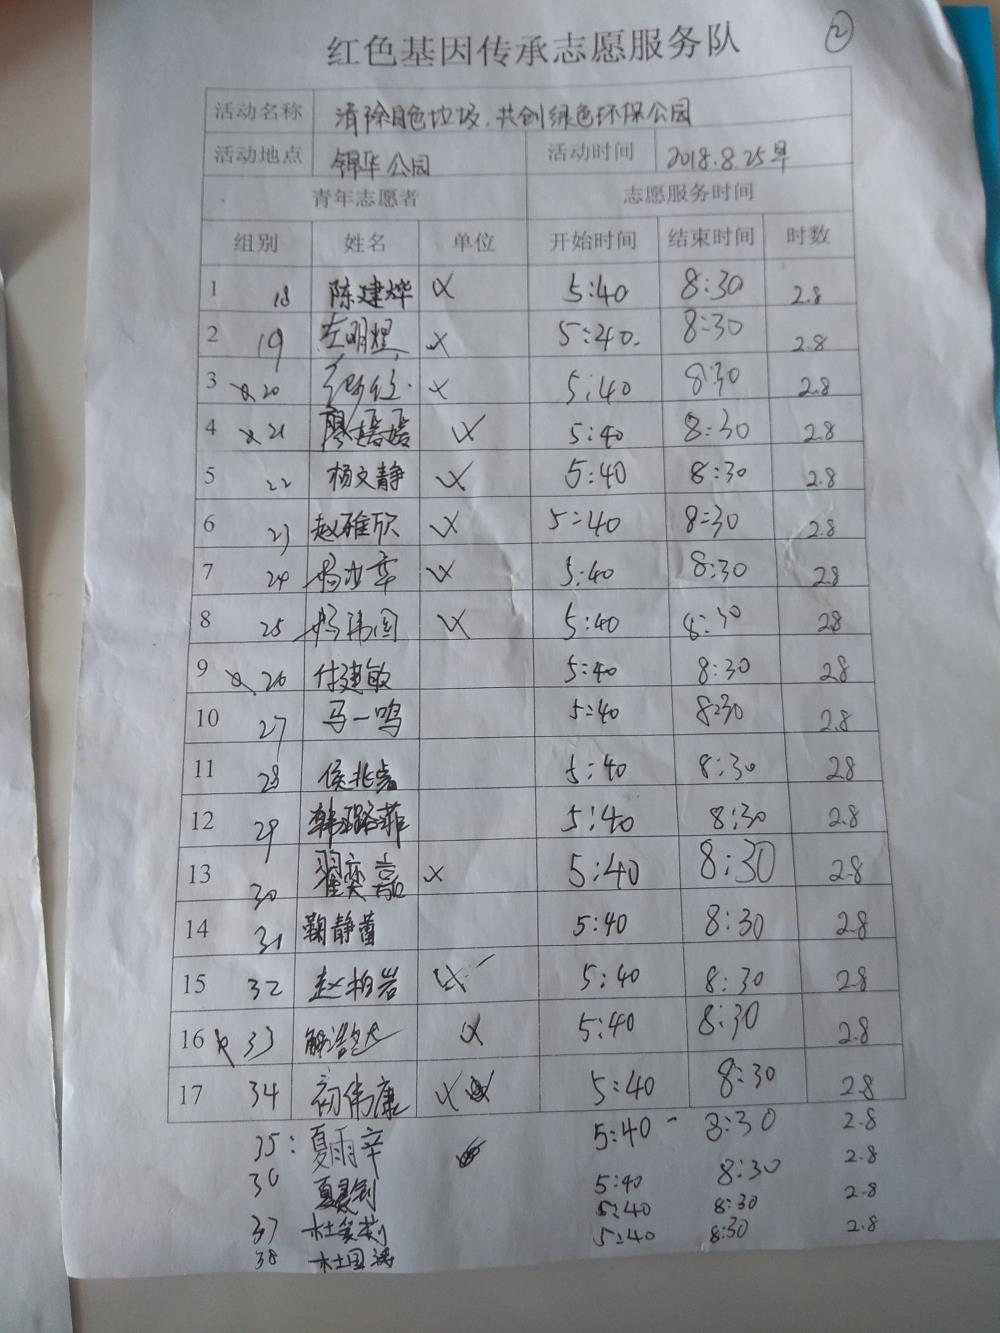 ②
红色基因传承志愿服务队
活动名称 清除白色垃圾.共创绿色环保公园
活动地点 锦华公园 活动时间 2018.8.25早
青年志愿者 志愿服务时间
组别 姓名 单位 开始时间 结束时间 时数
1 18 陈建烨 x 5:40 8:30 2.8
2 19 左明煜 x 5:40. 8:30 2.8
3 20 x 5:40 8:30 2.8
4 21 廖媛媛 x 5:40 8:30 2.8
5 22 杨文静 x 5:40 8:30 2.8
6 23 赵雅欣 x 5:40 8:30 2.8
7 24 x 5:40 8:30 28
8 25 x 5:40 8:30 28
9 26 付建敏 5:40 8:30 28
10 27 马一鸣 5:40 8:30 2.8
11 28 侯兆 5:40 8:30 28
12 29 韩璐菲 5:40 8:30 2.8
13 30 翟奕嘉 x 5:40 8:30 2.8
14 31 鞠静蕾 5:40 8:30 2.8
15 32 赵柏岩 x 5:40 8:30 2.8
16 33 解 x 5:40 8:30 2.8
17 34 初伟康 x 5:40 8:30 2.8
35: 夏雨辛 5:40 - 8:30 2.8
36 夏 5:40 8:30 2.8
37 杜 5:40 8:30 2.8
38 杜国涛 5:40 8:30 2.8